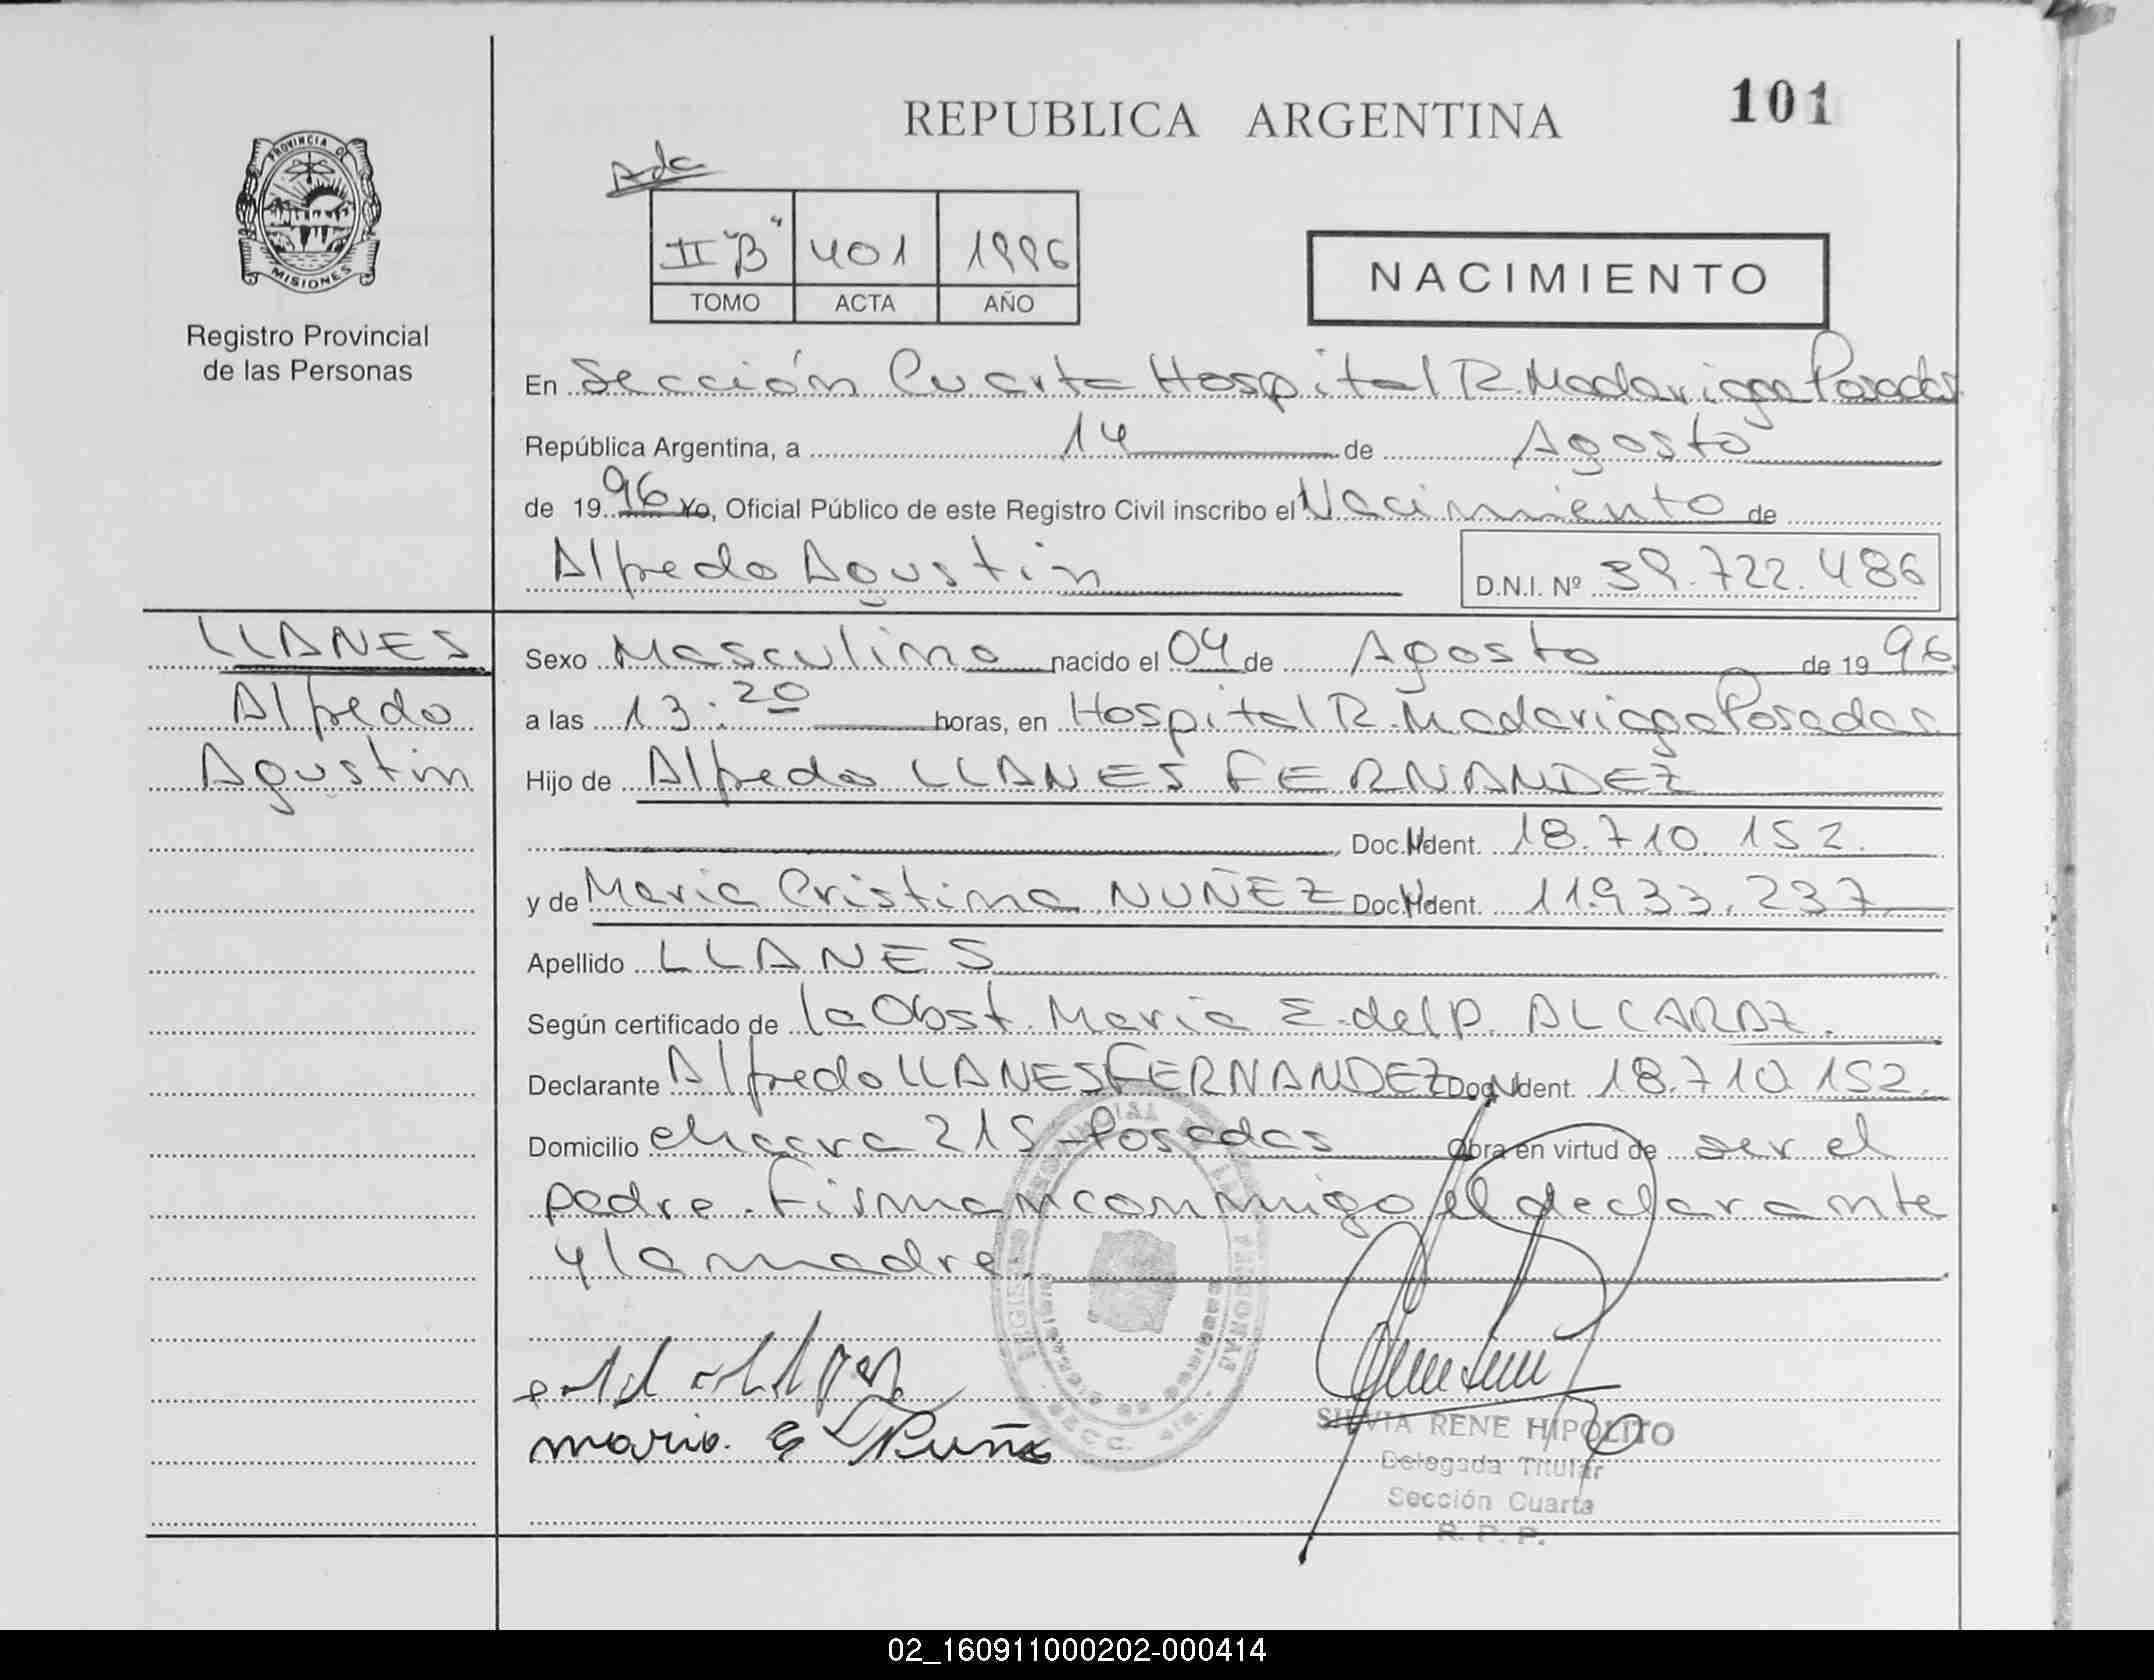 101
REPUBLICA ARGENTINA
PROVINCIA DE
MISIONES
Registro Provincial
de las Personas
II "B" 401 1996
TOMO ACTA AÑO
NACIMIENTO
En Sección Cuarta Hospital R. Madariaga Posadas
República Argentina, a 14 de Agosto
de 1996 Yo, Oficial Público de este Registro Civil inscribo el Nacimiento de
Alfredo Agustin D.N.I. Nº 39.722.486
LLANES
Alfredo
Agustin
Sexo Masculino nacido el 04 de Agosto de 1996
a las 13:20 horas, en Hospital R. Madariaga Posadas
Hijo de Alfredo LLANES FERNANDEZ
Doc. Ident. 18.710.152.
y de Maria Cristina NUÑEZ Doc. Ident. 11.933.237
Apellido LLANES
Según certificado de la Obst. Maria E. del P. ALCARAZ.
Declarante Alfredo LLANES FERNANDEZ Doc. Ident. 18.710.152.
Domicilio chacra 215 - Posadas Obra en virtud de ser el
padre. Firman conmigo el declarante
y la madre.
SILVIA RENE HIPOLITO
Delegada Titular
Sección Cuarta
R. P. P.
02_160911000202-000414